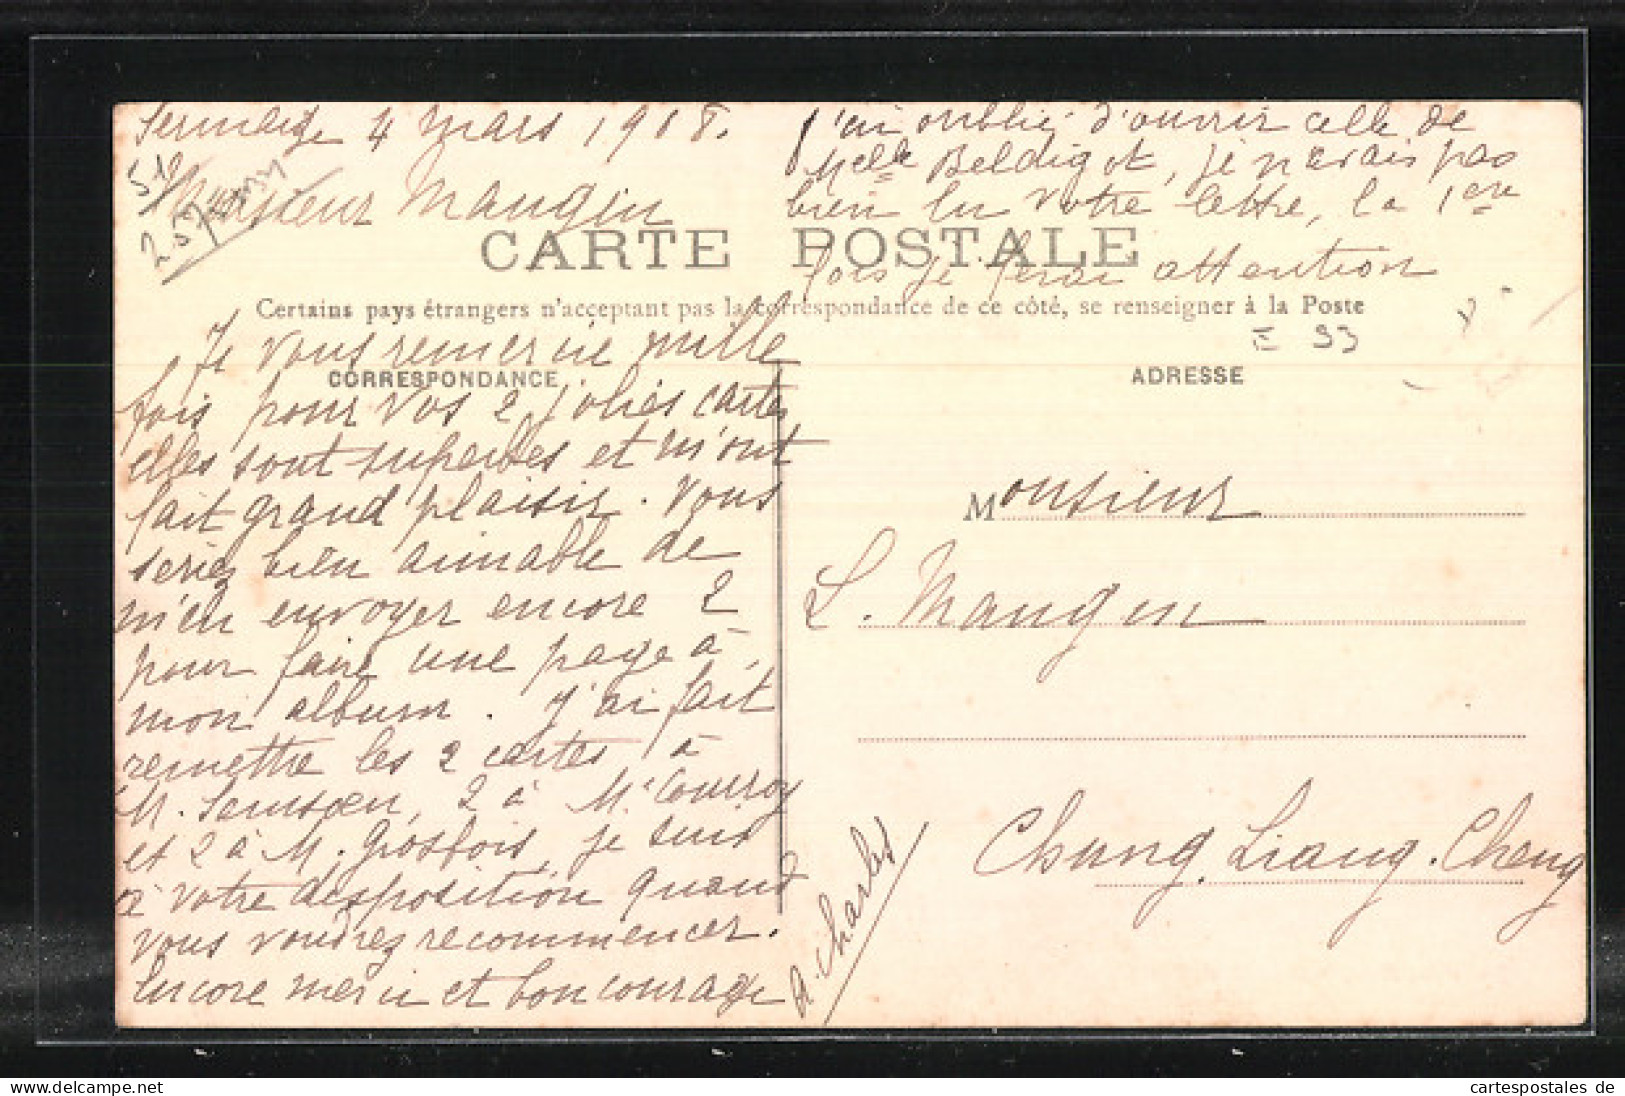 Sermaize 4 mars 1908.
Monsieur Mangin
CARTE POSTALE
Certains pays étrangers n'acceptant pas la correspondance de ce côté, se renseigner à la Poste
CORRESPONDANCE
Je vous remercie mille
fois pour vos 2 jolies cartes
elles sont superbes et m'ont
fait grand plaisir. Vous
seriez bien aimable de
m'en envoyer encore 2
pour faire une page à
mon album. J'ai fait
remettre les 2 cartes à
M. Samson, 2 à M. Courroy
et 2 à M. Grosbois, je suis
à votre disposition quand
vous voudrez recommencer.
Encore merci et bon courage
A. Charles
J'ai oublié d'ouvrir celle de
Melle Beldigot, je n'avais pas
bien lu votre lettre, la 1ere
fois je ferai attention
E 93
ADRESSE
Monsieur
L. Mangin
Chung. Liang. Cheng
51
cartepostale_de
cartespostales de